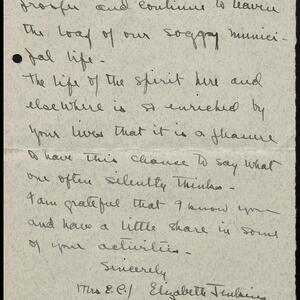 prosper and continue to leaven
the loaf of our soggy munici-
pal life -
The life of the spirit here and
elsewhere is so enriched by
your lives that it is a pleasure
to have this chance to say what
one often silently thinks -
I am grateful that I know you
and have a little share in some
of your activities -
Sincerely
Mrs E.C./ Elizabeth Jenkins